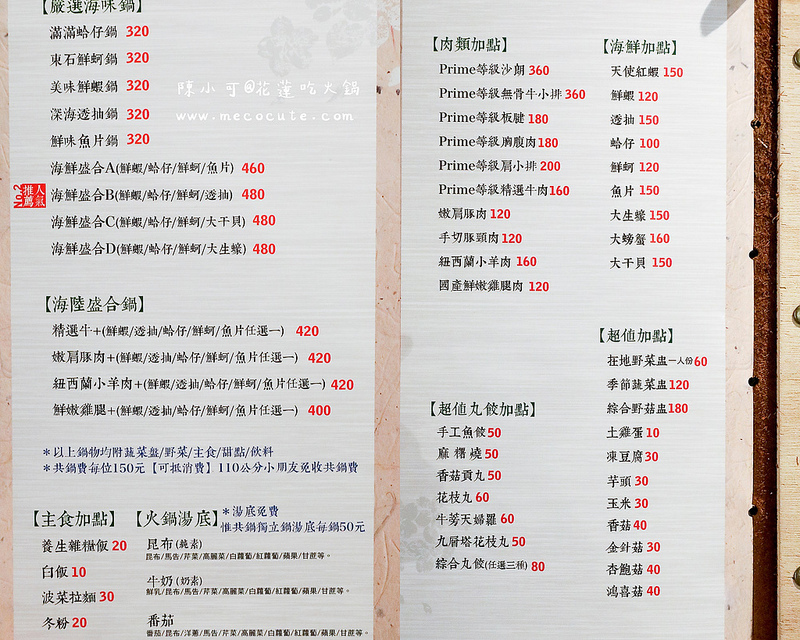 【嚴選海味鍋】
滿滿蛤仔鍋 320
東石鮮蚵鍋 320
美味鮮蝦鍋 320
深海透抽鍋 320
鮮味魚片鍋 320
海鮮盛合A(鮮蝦/蛤仔/鮮蚵/魚片) 460
No.2 人氣推薦
海鮮盛合B(鮮蝦/蛤仔/鮮蚵/透抽) 480
海鮮盛合C(鮮蝦/蛤仔/鮮蚵/大干貝) 480
海鮮盛合D(鮮蝦/蛤仔/鮮蚵/大生蠔) 480
陳小可@花蓮吃火鍋
www.mecocute.com
【海陸盛合鍋】
精選牛+(鮮蝦/透抽/蛤仔/鮮蚵/魚片任選一) 420
嫩肩豚肉+(鮮蝦/透抽/蛤仔/鮮蚵/魚片任選一) 420
紐西蘭小羊肉+(鮮蝦/透抽/蛤仔/鮮蚵/魚片任選一) 420
鮮嫩雞腿+(鮮蝦/透抽/蛤仔/鮮蚵/魚片任選一) 400
*以上鍋物均附蔬菜盤/野菜/主食/甜點/飲料
*共鍋費每位150元【可抵消費】110公分小朋友免收共鍋費
【主食加點】
養生雜糧飯 20
白飯 10
菠菜拉麵 30
冬粉 20
【火鍋湯底】
*湯底免費
惟共鍋獨立鍋湯底每鍋50元
昆布(純素)
昆布/馬告/芹菜/高麗菜/白蘿蔔/紅蘿蔔/蘋果/甘蔗等。
牛奶(奶素)
鮮乳/昆布/馬告/芹菜/高麗菜/白蘿蔔/紅蘿蔔/蘋果/甘蔗等。
番茄
番茄/昆布/洋蔥/馬告/芹菜/高麗菜/白蘿蔔/紅蘿蔔/蘋果/甘蔗等。
【肉類加點】
Prime等級沙朗 360
Prime等級無骨牛小排 360
Prime等級板腱 180
Prime等級胸腹肉 180
Prime等級肩小排 200
Prime等級精選牛肉 160
嫩肩豚肉 120
手切豚頸肉 120
紐西蘭小羊肉 160
國產鮮嫩雞腿肉 120
【海鮮加點】
天使紅蝦 150
鮮蝦 120
透抽 150
蛤仔 100
鮮蚵 120
魚片 150
大生蠔 150
大螃蟹 160
大干貝 150
【超值丸餃加點】
手工魚餃 50
麻糬燒 50
香菇貢丸 50
花枝丸 60
牛蒡天婦羅 60
九層塔花枝丸 50
綜合丸餃(任選三種) 80
【超值加點】
在地野菜盅一人份 60
季節蔬菜盅 120
綜合野菇盅 180
土雞蛋 10
凍豆腐 30
芋頭 30
玉米 30
香菇 40
金針菇 30
杏鮑菇 40
鴻喜菇 40